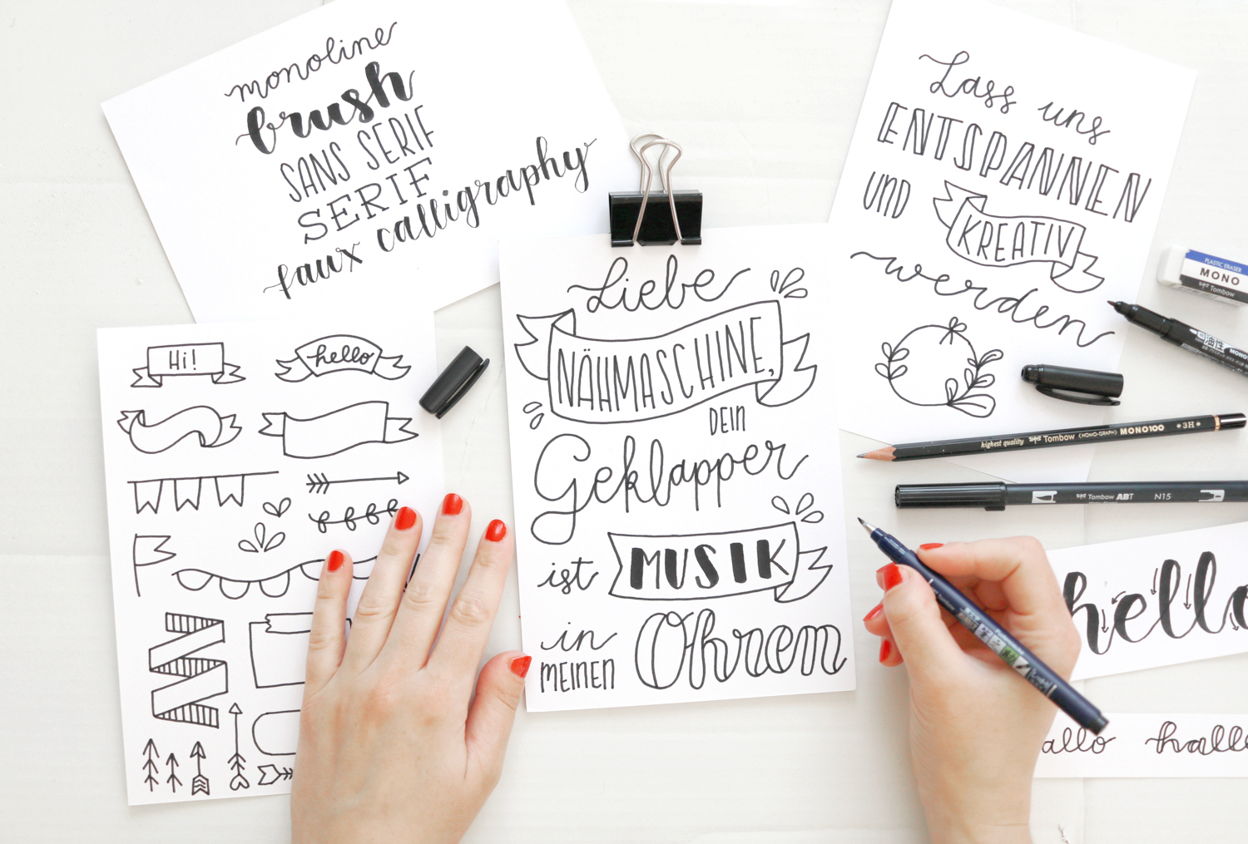 monoline
brush
SANS SERIF
SERIF
faux calligraphy
Hi!
hello
Liebe
NÄHMASCHINE,
DEIN
Geklapper
ist MUSIK
in MEINEN Ohren
Lass uns
ENTSPANNEN
UND KREATIV
werden
PLASTIC ERASER
MONO
Tombow
MONO
highest quality Tombow (MONO-GRAPH) MONO100 3H
Tombow ABT N15
hello
allo
hallo